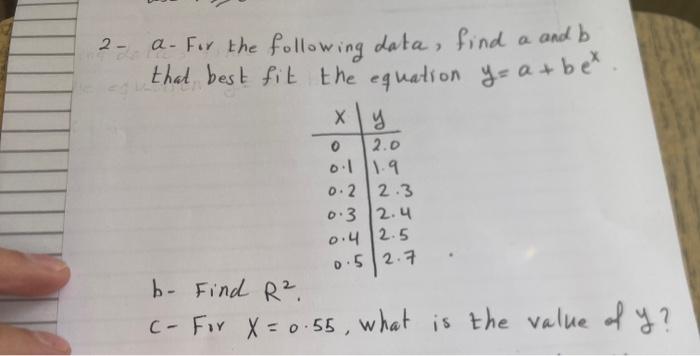 2- a- For the following data, find a and b
that best fit the equation y= a + be^x.
x | y
0 | 2.0
0.1 | 1.9
0.2 | 2.3
0.3 | 2.4
0.4 | 2.5
0.5 | 2.7
b- Find R².
c- For X = 0.55, what is the value of y?